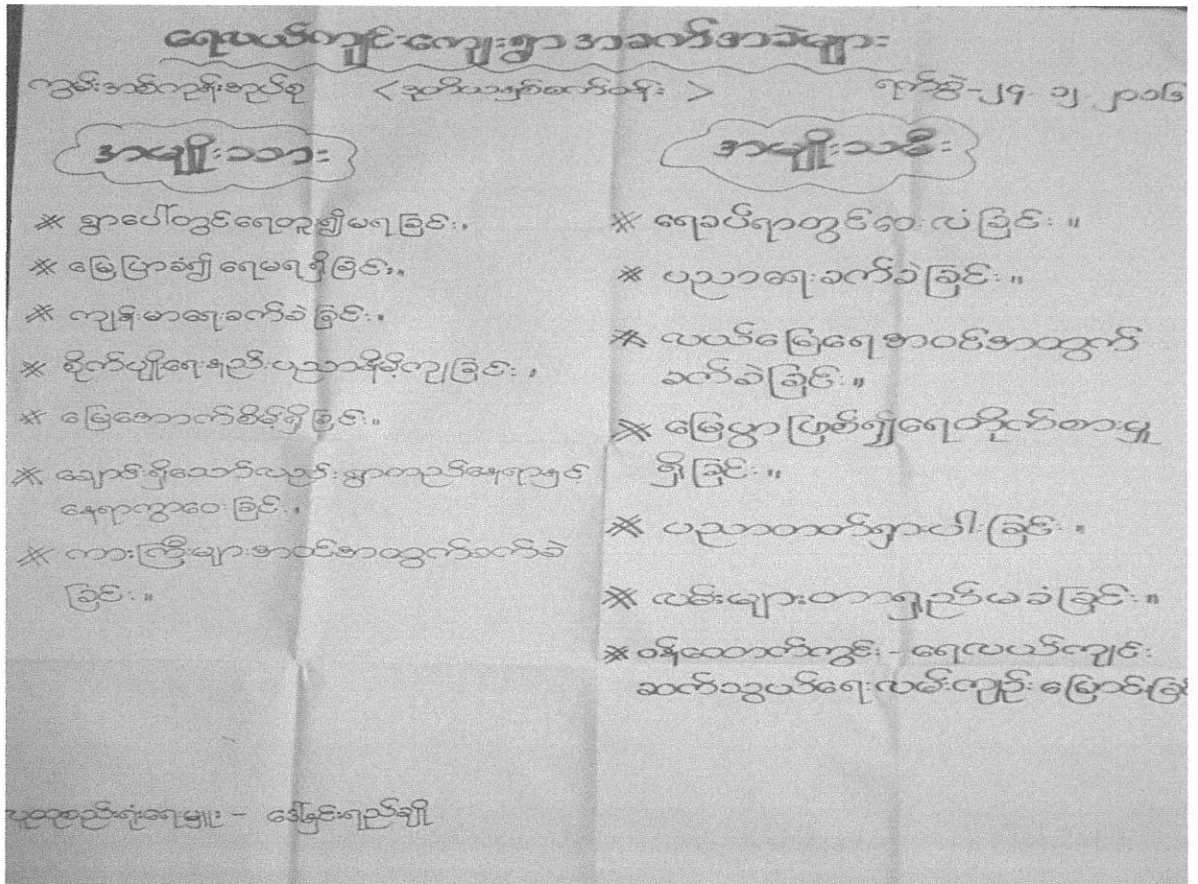 ရေလယ်ကျင်းကျေးရွာ အခက်အခဲများ
ကွမ်းခြံကုန်းအုပ်စု < ဒုတိယနှစ်မက်ခန်း > ရက်စွဲ-၂၄. ၁၂. ၂၀၁၆
အမျိုးသား
* ရွာပေါ်တွင်ရေတူး၍မရခြင်း။
* မြေပြာခံ၍ ရေမရရှိခြင်း။
* ကျန်းမာရေးခက်ခဲခြင်း။
* စိုက်ပျိုးရေးနည်းပညာနိမ့်ကျခြင်း။
* မြေအောက်စိမ့်ရှိခြင်း။
* ချောင်းရှိသော်လည်းရွာတည်နေရာနှင့်
နေရာကွာဝေးခြင်း။
* ကားကြီးများအဝင်အထွက်ခက်ခဲ
ခြင်း။
အမျိုးသမီး
* ရေခပ်ရာတွင်ဝေးလံခြင်း။
* ပညာရေးခက်ခဲခြင်း။
* လယ်မြေရေအဝင်အထွက်
ခက်ခဲခြင်း။
* မြေပွာဖြစ်၍ရေတိုက်စားမှု
ရှိခြင်း။
* ပညာတတ်ရှားပါးခြင်း။
* လမ်းများတာရှည်မခံခြင်း။
* ဝန်ထောက်ကွင်း - ရေလယ်ကျင်း
ဆက်သွယ်ရေးလမ်းကျဉ်းမြောင်းခြင်း
ပူးတွဲစည်းရုံးရေးမှူး - ဒေါ်နှင်းရည်ချို